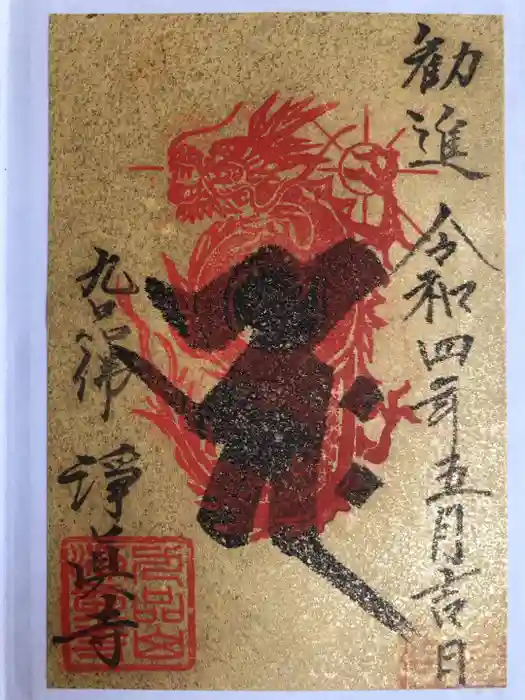 勧進
令和四年五月吉日
九品佛
淨眞寺